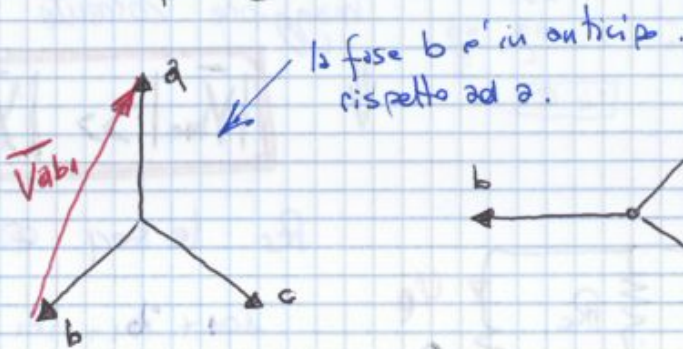 la fase b e' in anticipo.
rispetto ad a.
a
Vab1
b
c
b